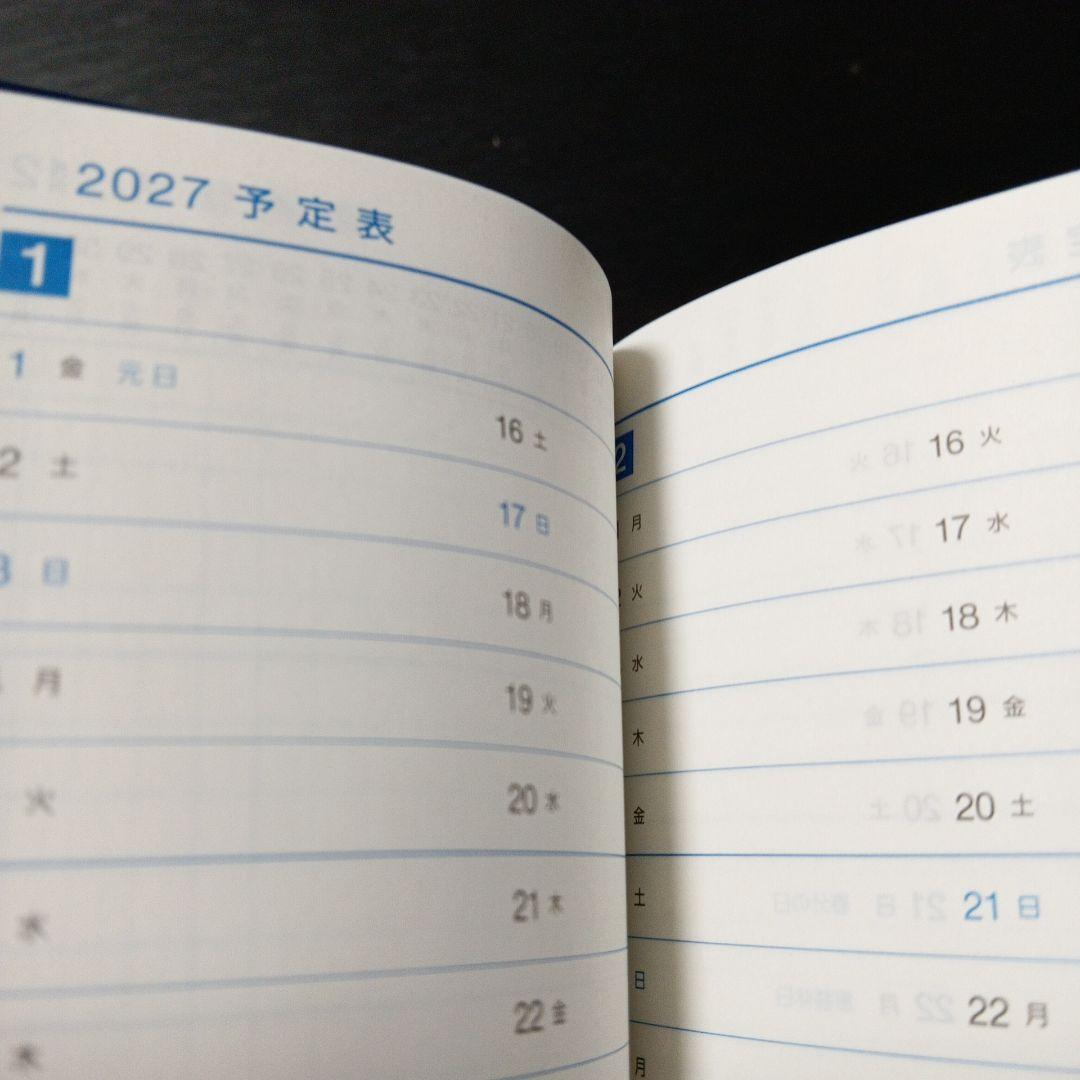 2027 予定表
1
1 金 元日
2 土
3 日
月
火
水
木
16 土
17 日
18 月
19 火
20 水
21 木
22 金
2
1 月
2 火
水
木
金
土
日
月
16 火
17 水
18 木
19 金
20 土
21 日
22 月